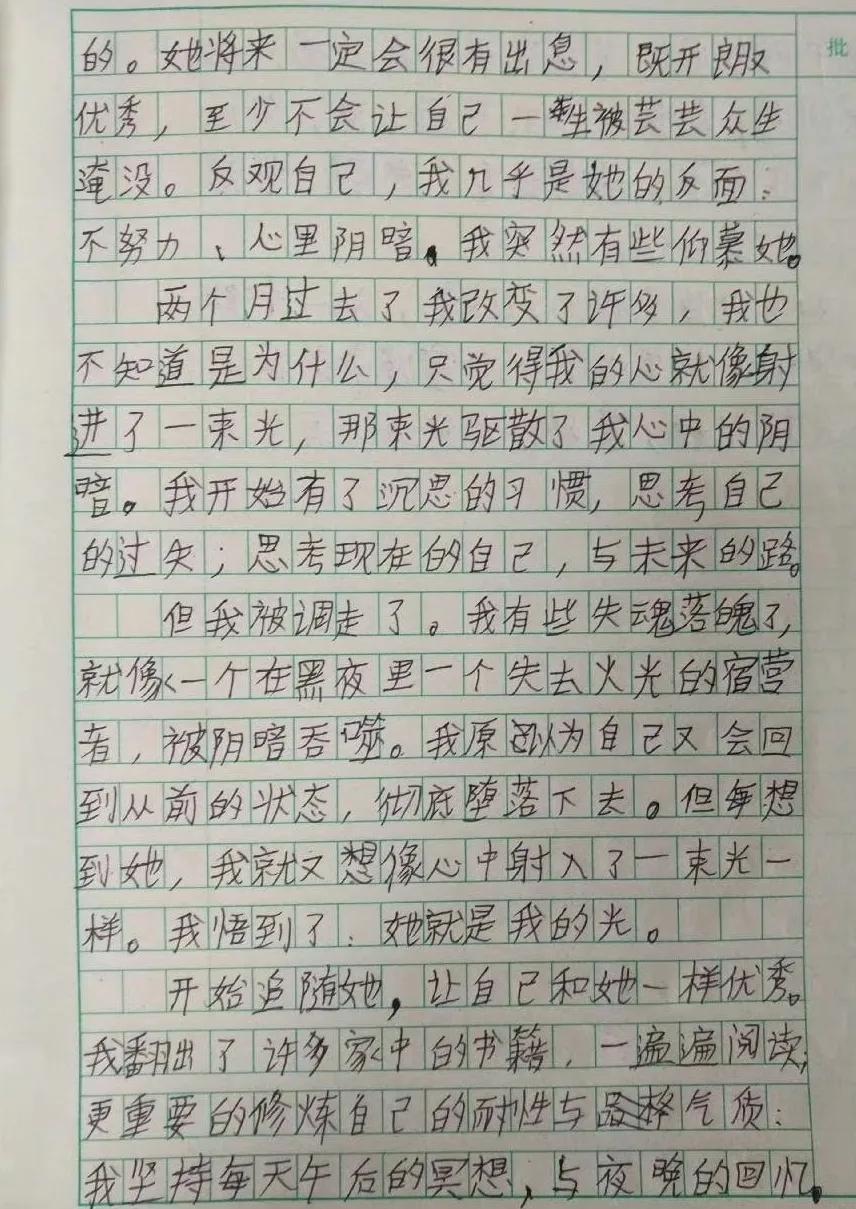 批
的。她将来一定会很有出息，既开朗又
优秀，至少不会让自己一生被芸芸众生
淹没。反观自己，我几乎是她的反面：
不努力、心里阴暗。我突然有些仰慕她。
两个月过去了我改变了许多，我也
不知道是为什么，只觉得我的心就像射
进了一束光，那束光驱散了我心中的阴
暗。我开始有了沉思的习惯，思考自己
的过失；思考现在的自己，与未来的路。
但我被调走了。我有些失魂落魄了，
就像一个在黑夜里一个失去火光的宿营
者，被阴暗吞噬。我原以为自己又会回
到从前的状态，彻底堕落下去。但每想
到她，我就又想像心中射入了一束光一
样。我悟到了：她就是我的光。
开始追随她，让自己和她一样优秀。
我翻出了许多家中的书籍，一遍遍阅读；
更重要的修炼自己的耐性与品格气质：
我坚持每天午后的冥想，与夜晚的回忆。